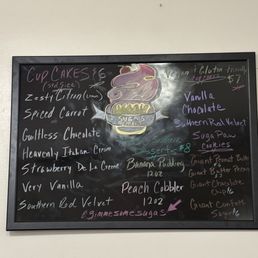 CUP CAKES
Zesty Citron (Lemon)
Spiced Carrot
Guiltless Chocolate
Heavenly Italian Cream
Strawberry De La Creme
Very Vanilla
Southern Red Velvet
SUGA'S
$8
Banana Pudding
12oz
Peach Cobbler
12oz
@gimmesomesugas
Gluten
$7
Vanilla
Chocolate
Southern Red Velvet
Suga Paw
Cookies
Giant Peanut Butter
Giant Butter Pecan
Giant Chocolate
Chips
Giant